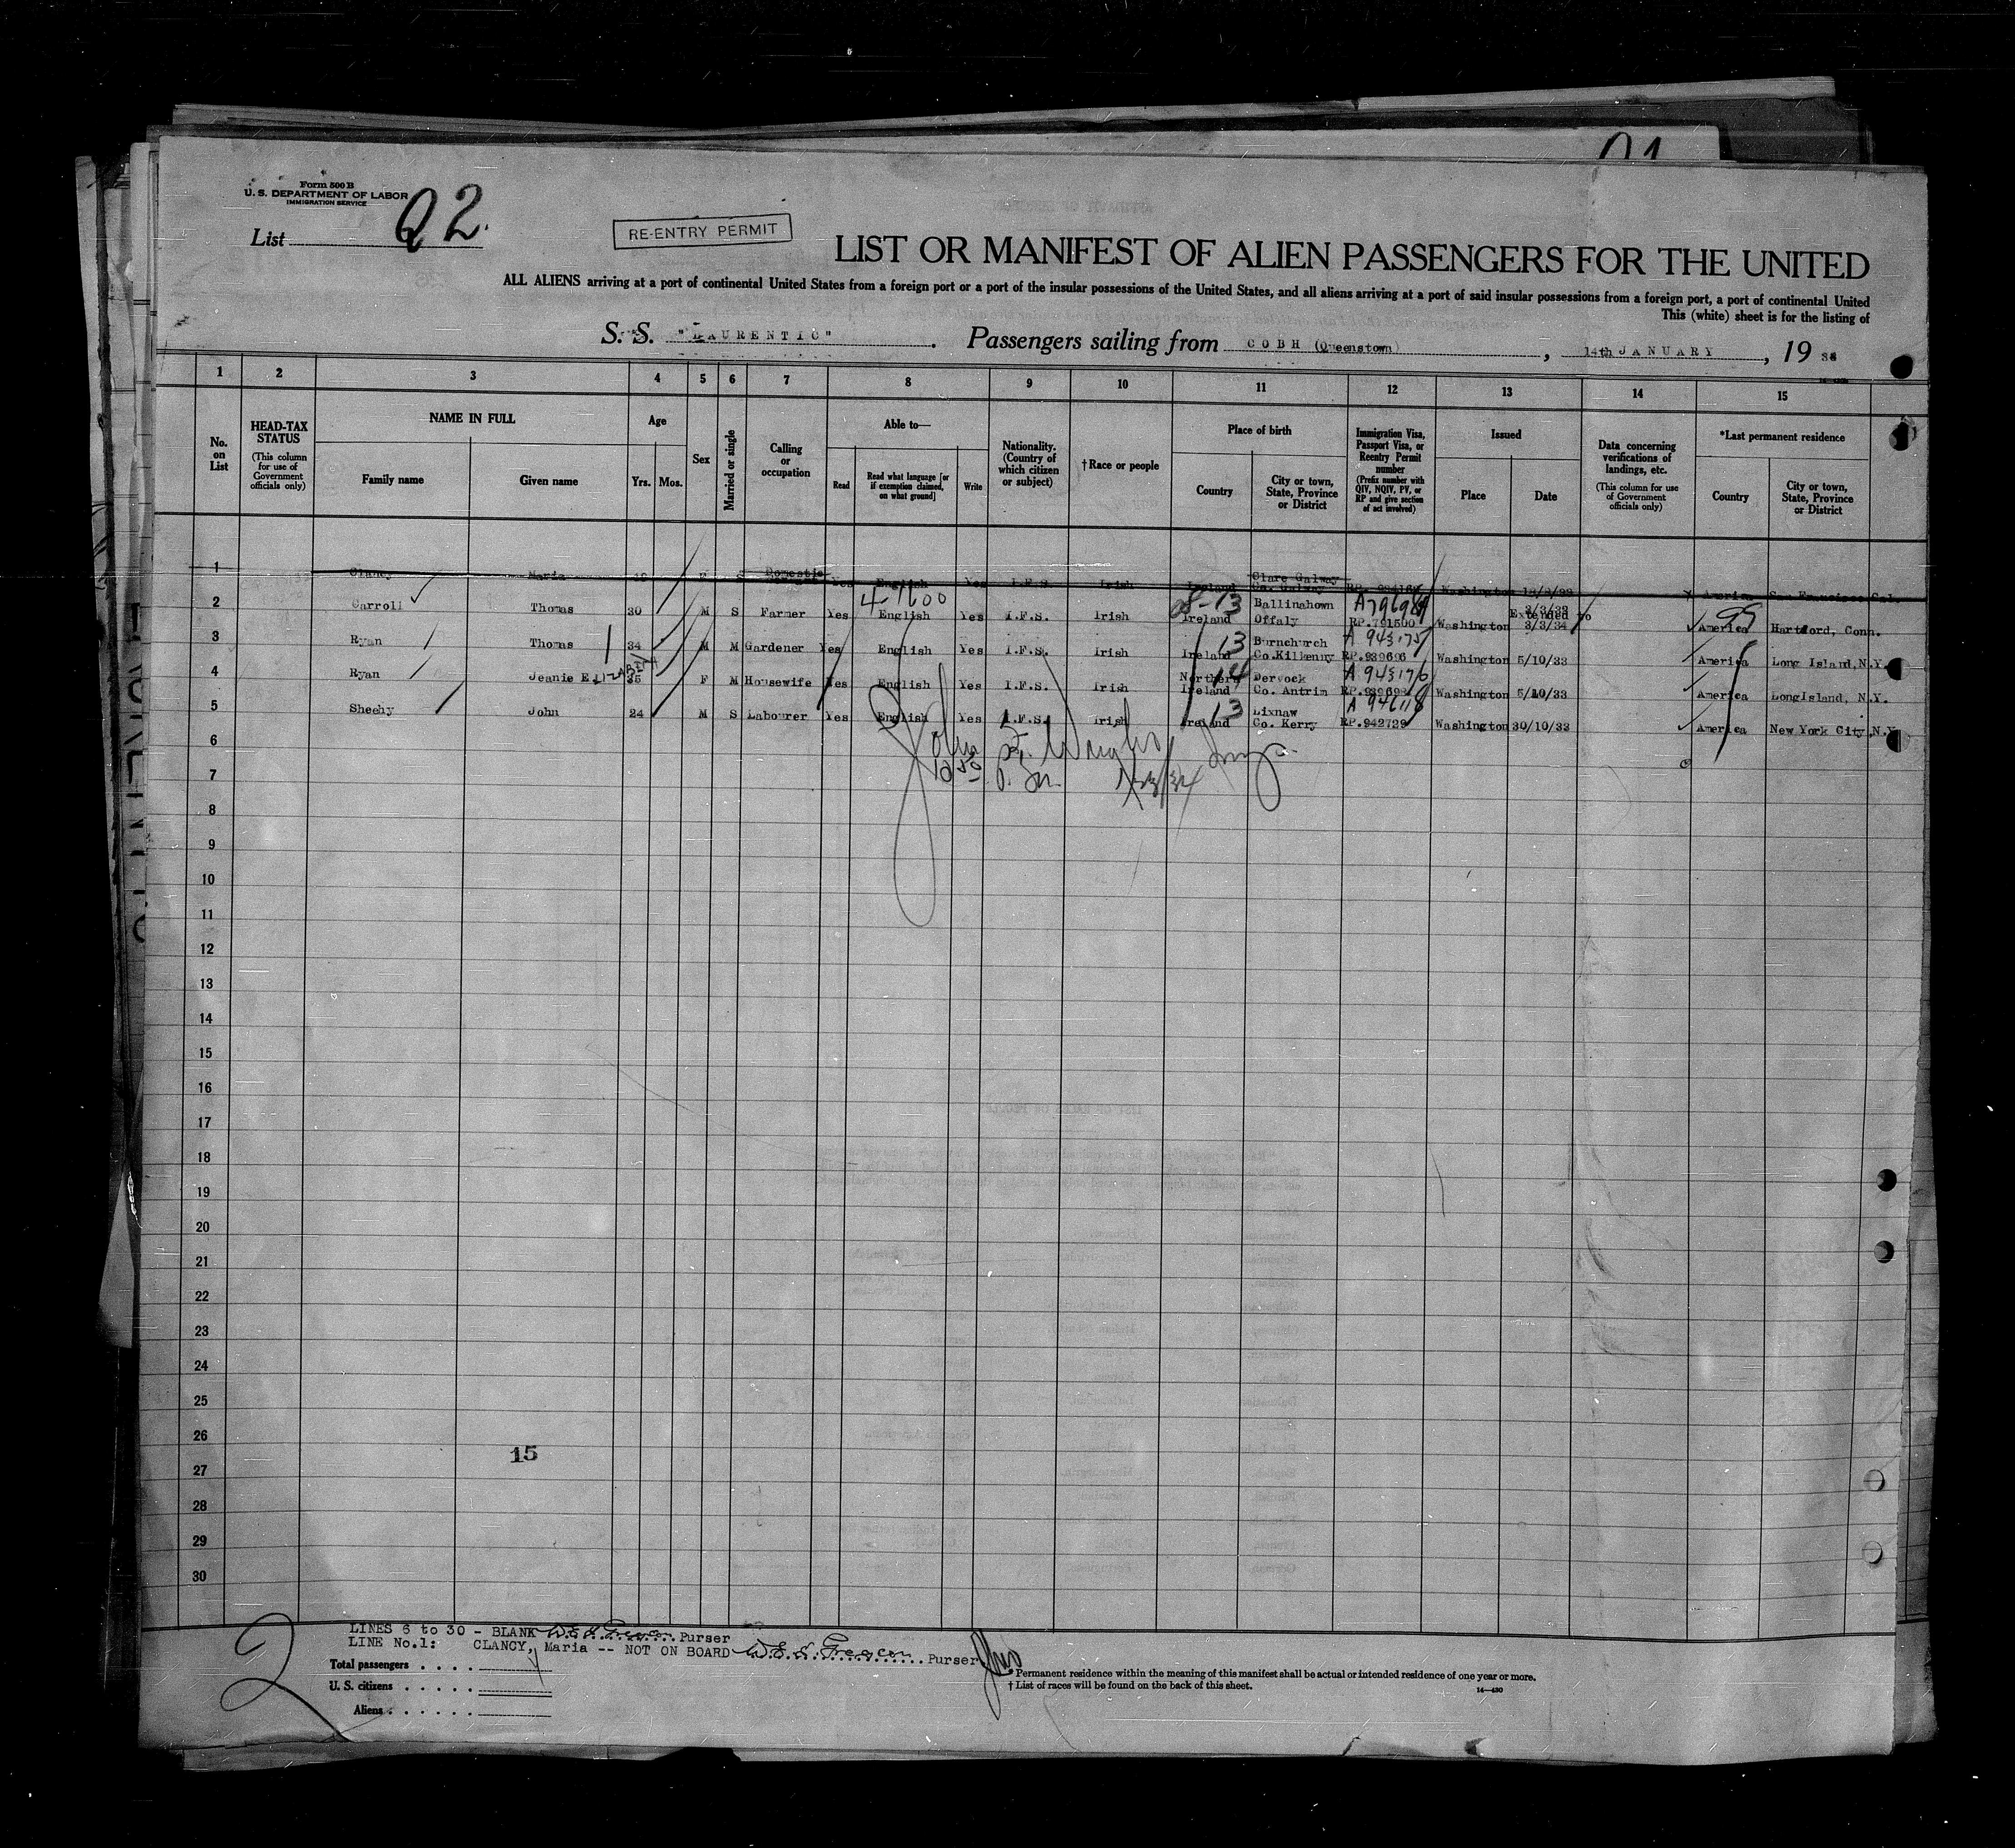 Form 500 B
U. S. DEPARTMENT OF LABOR
IMMIGRATION SERVICE
List 92.
RE-ENTRY PERMIT
LIST OR MANIFEST OF ALIEN PASSENGERS FOR THE UNITED
ALL ALIENS arriving at a port of continental United States from a foreign port or a port of the insular possessions of the United States, and all aliens arriving at a port of said insular possessions from a foreign port, a port of continental United
This (white) sheet is for the listing of
S. S. "LAURENTIC". Passengers sailing from COBH (Queenstown), 14th JANUARY, 19
1 2 3 4 5 6 7 8 9 10 11 12 13 14 15
No. on List
HEAD-TAX STATUS
(This column for use of Government officials only)
NAME IN FULL
Family name
Given name
Age
Yrs. Mos.
Sex
Married or single
Calling or occupation
Able to—
Read
Read what language [or if exemption claimed, on what ground]
Write
Nationality. (Country of which citizen or subject)
†Race or people
Place of birth
Country
City or town, State, Province or District
Immigration Visa, Passport Visa, or Reentry Permit number
(Prefix number with QIV, NQIV, PV, or RP and give section of act involved)
Issued
Place
Date
Data concerning verifications of landings, etc.
(This column for use of Government officials only)
*Last permanent residence
Country
City or town, State, Province or District
1 Clancy Maria F S Domestic Yes English Yes I.F.S. Irish Ireland Clare Galway Co. Galway Washington America San Francisco Cal.
4-1600
2 Carroll Thomas 30 M S Farmer Yes English Yes I.F.S. Irish Ireland Ballinahown Offaly RP.791500 Washington 3/3/33 Extended to 3/3/34 America Hartford, Conn.
3 Ryan Thomas 34 M M Gardener Yes English Yes I.F.S. Irish 13 Ireland Burnchurch Co.Kilkenny A 943175 RP.939696 Washington 5/10/33 America Long Island, N.Y.
4 Ryan Jeanie ELIZABETH 35 F M Housewife Yes English Yes I.F.S. Irish 14 Northern Ireland Dervock Co. Antrim A 943176 Washington 5/10/33 America LongIsland, N.Y.
5 Sheehy John 24 M S Labourer Yes English Yes I.F.S. Irish 13 Ireland Lixnaw Co. Kerry A 946118 RP.942729 Washington 30/10/33 America New York City, N.Y.
6
7
8
9
10
11
12
13
14
15
16
17
18
19
20
21
22
23
24
25
26
15
27
28
29
30
LINES 6 to 30 - BLANK Purser
LINE No.1: CLANCY, Maria -- NOT ON BOARD Purser
Total passengers
U. S. citizens
Aliens
2
* Permanent residence within the meaning of this manifest shall be actual or intended residence of one year or more.
† List of races will be found on the back of this sheet.
14—430